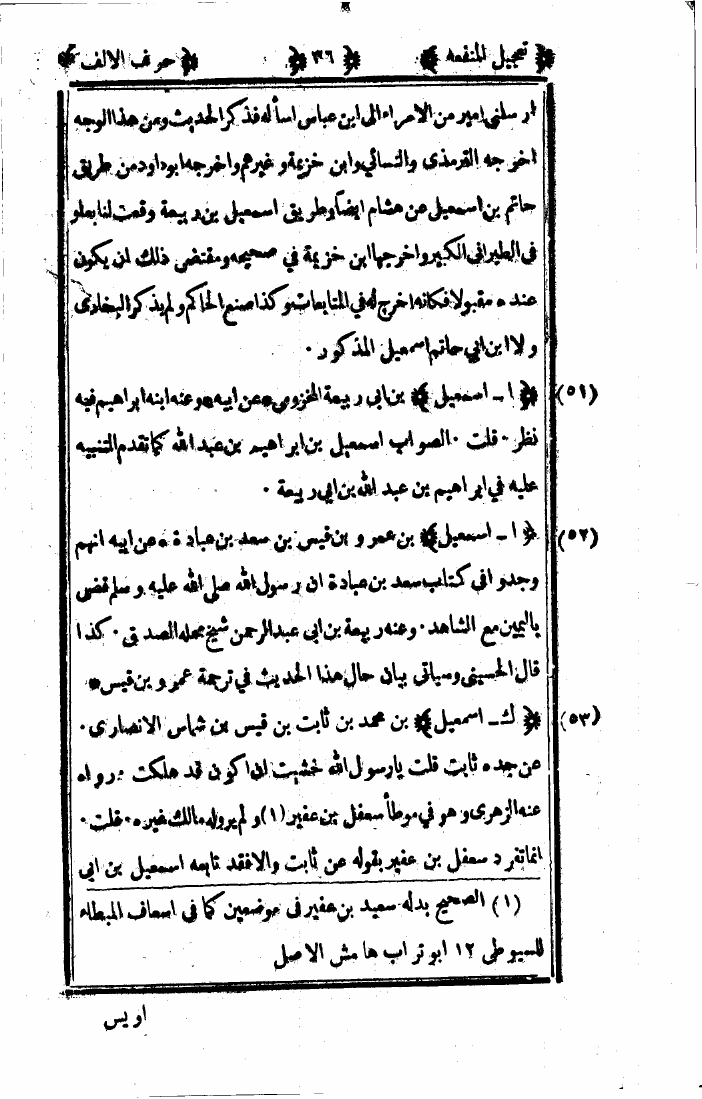 ﴿ تعجيل المنفعه ﴾ ﴿ ٣٦ ﴾ ﴿ حرف الالف ﴾
ارسلنى امير من الامراء الى ابن عباس اسأله فذكر الحديث ومن هذا الوجه
اخرجه الترمذى والنسائي وابن خزيمة وغيرهم واخرجه ابوداود من طريق
حاتم بن اسمعيل عن هشام ايضا وطريق اسمعيل بن ربيعة وقعت لنا بعلو
فى الطبرانى الكبير واخرجها ابن خزيمة في صحيحه ومقتضى ذلك ان يكون
عنده مقبولا فكانه اخرج له في المتابعات وكذا صنع الحاكم ولم يذكر البخارى
ولا ابن ابي حاتم اسمعيل المذكور ٠
(٥١) ﴿ ا ـ اسمعيل ﴾ بن ابى ربيعة المخزومى * عن ابيه * وعنه ابنه ابراهيم فيه
نظر ٠ قلت ٠ الصواب اسمعيل بن ابراهيم بن عبد الله كما تقدم التنبيه
عليه في ابراهيم بن عبد الله بن ابي ربيعة ٠
(٥٢) ﴿ ا ـ اسمعيل ﴾ بن عمرو بن قيس بن سعد بن عبادة * عن ابيه انهم
وجدوا فى كتاب سعد بن عبادة ان رسول الله صلى الله عليه وسلم قضى
باليمين مع الشاهد ٠ وعنه ربيعة بن ابى عبدالرحمن شيخ محله الصدق ٠ كذا
قال الحسينى وسياتى بيان حال هذا الحديث في ترجمة عمرو بن قيس *
(٥٣) ﴿ ك ـ اسمعيل ﴾ بن محمد بن ثابت بن قيس بن شماس الانصارى ٠
عن جده ثابت قلت يارسول الله خشيت ان اكون قد هلكت ٠ رواه
عنه الزهرى وهو في موطأ سعفل بن عفير (١) ولم يروله مالك غيره ٠ قلت ٠
انما تفرد سعفل بن عفير بقوله عن ثابت والا فقد تابعه اسمعيل بن ابى
(١) الصحيح بدله سعيد بن عفير فى موضعين كما فى اسعاف المبطاء
للسيوطى ١٢ ابو تراب هامش الاصل
اويس